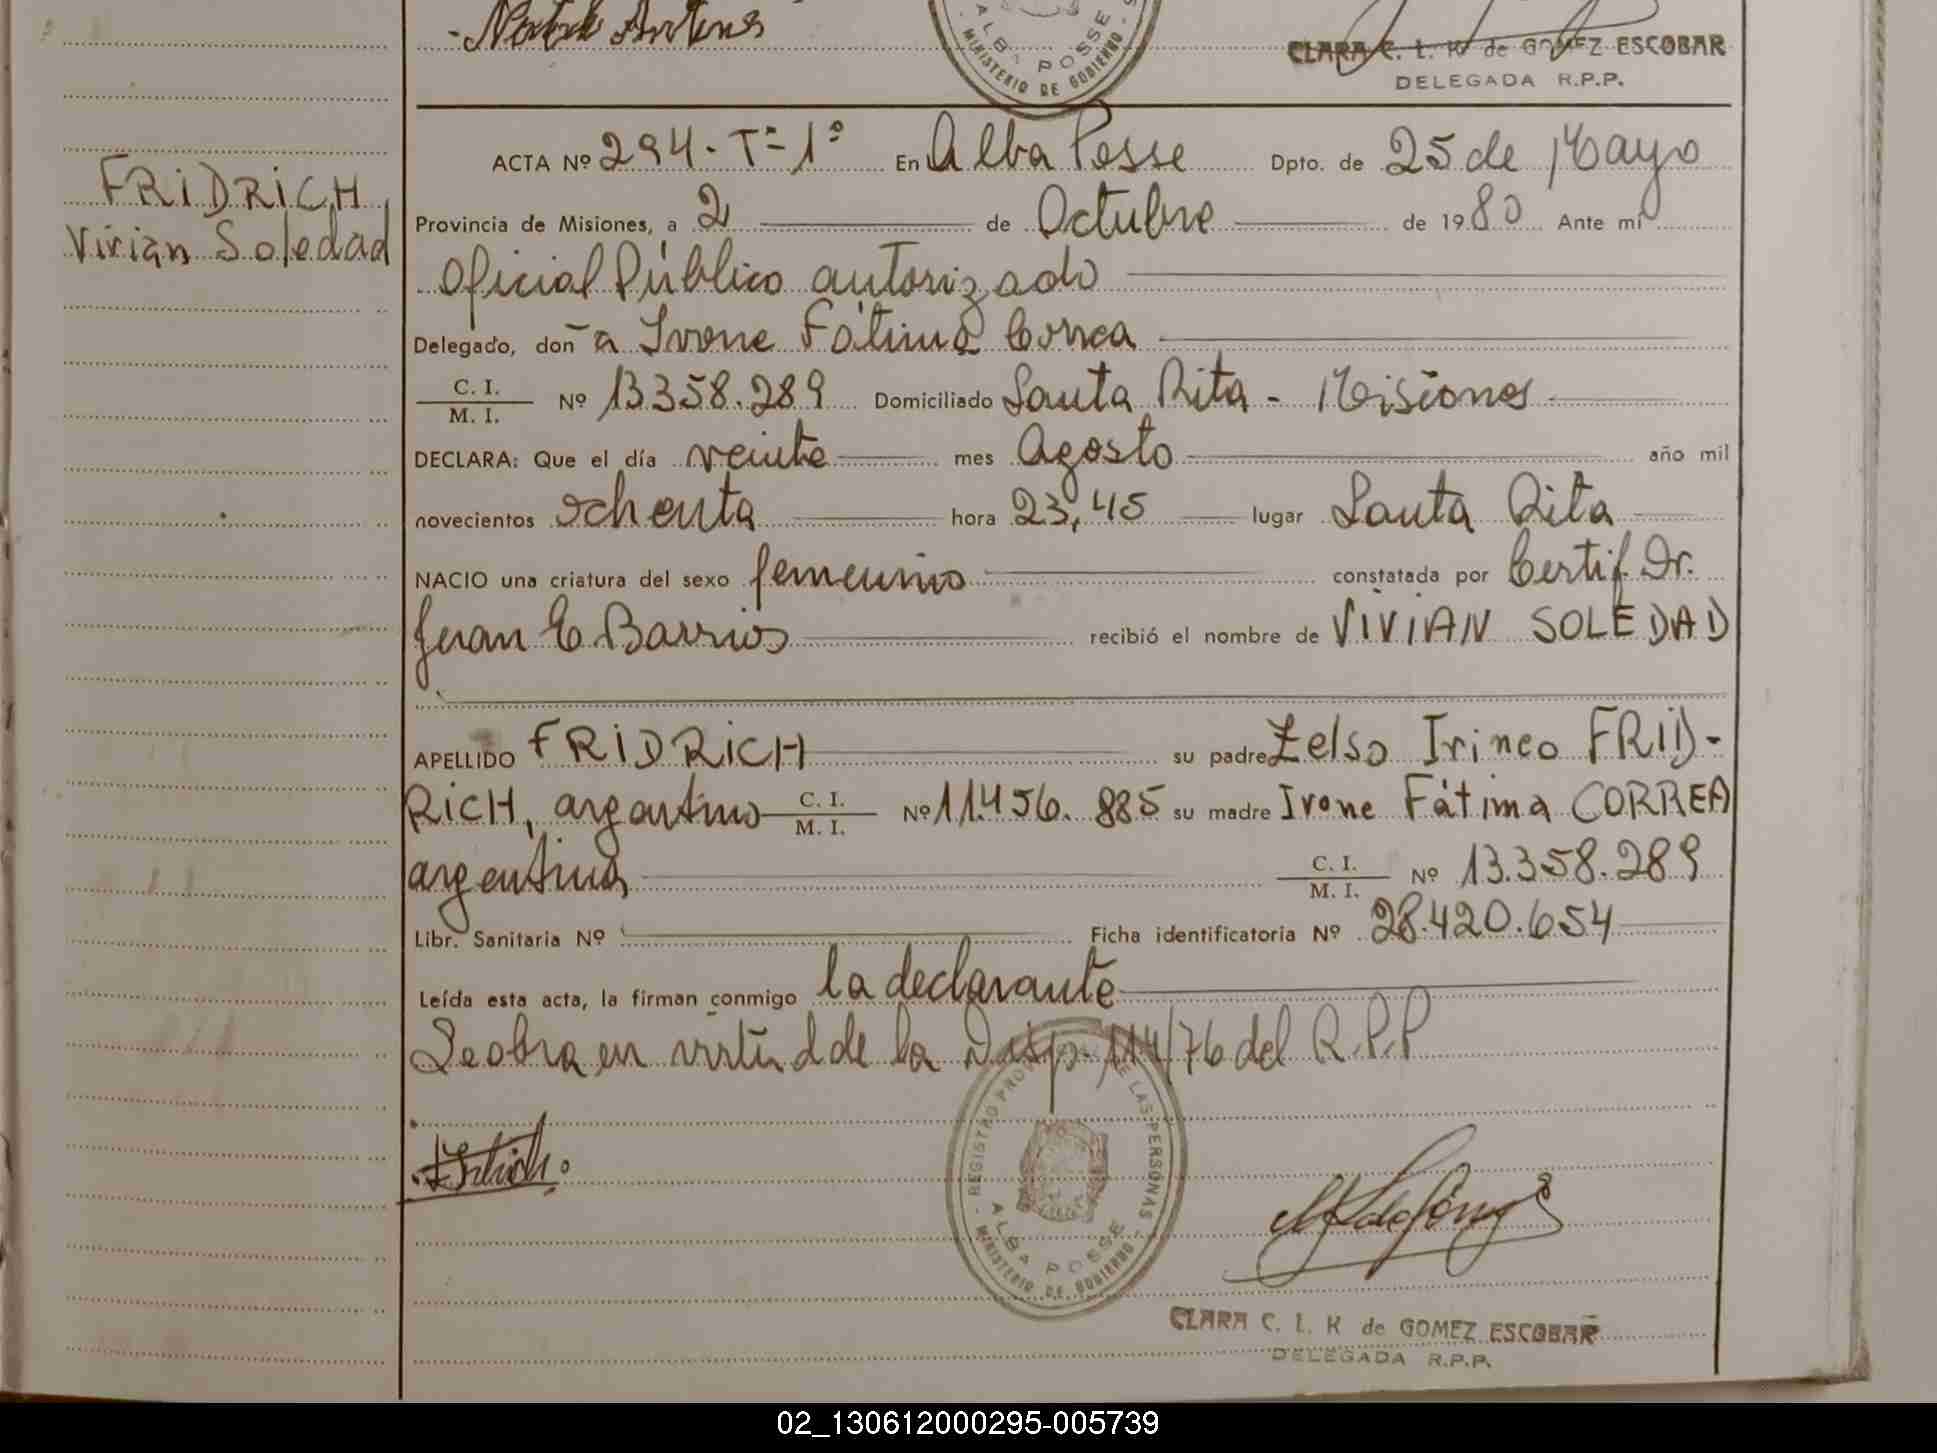 ALBA POSSE
MINISTERIO DE GOBIERNO
CLARA C. L. K de GOMEZ ESCOBAR
DELEGADA R.P.P.
FRIDRICH,
Vivian Soledad
ACTA Nº 294 - Tº 1º En Alba Posse Dpto. de 25 de Mayo
Provincia de Misiones, a 2 de Octubre de 1980 Ante mí
Oficial Público autorizado
Delegado, doña Ivone Fátima Correa
C. I. / M. I. Nº 13.358.289 Domiciliado Santa Rita - Misiones
DECLARA: Que el día veinte mes Agosto año mil
novecientos ochenta hora 23,45 lugar Santa Rita
NACIO una criatura del sexo femenino constatada por Certif. Dr.
Juan C. Barrios recibió el nombre de VIVIAN SOLEDAD
APELLIDO FRIDRICH su padre Zelso Irineo FRID-
RICH, argentino C. I. / M. I. Nº 11.456.885 su madre Ivone Fátima CORREA
argentina C. I. / M. I. Nº 13.358.289
Libr. Sanitaria Nº Ficha identificatoria Nº 28.420.654
Leída esta acta, la firman conmigo la declarante
Se obra en virtud de la Disp. 114/76 del R.P.P
REGISTRO PROVINCIAL DE LAS PERSONAS
ALBA POSSE
MINISTERIO DE GOBIERNO
CLARA C. L. K de GOMEZ ESCOBAR
DELEGADA R.P.P.
02_130612000295-005739